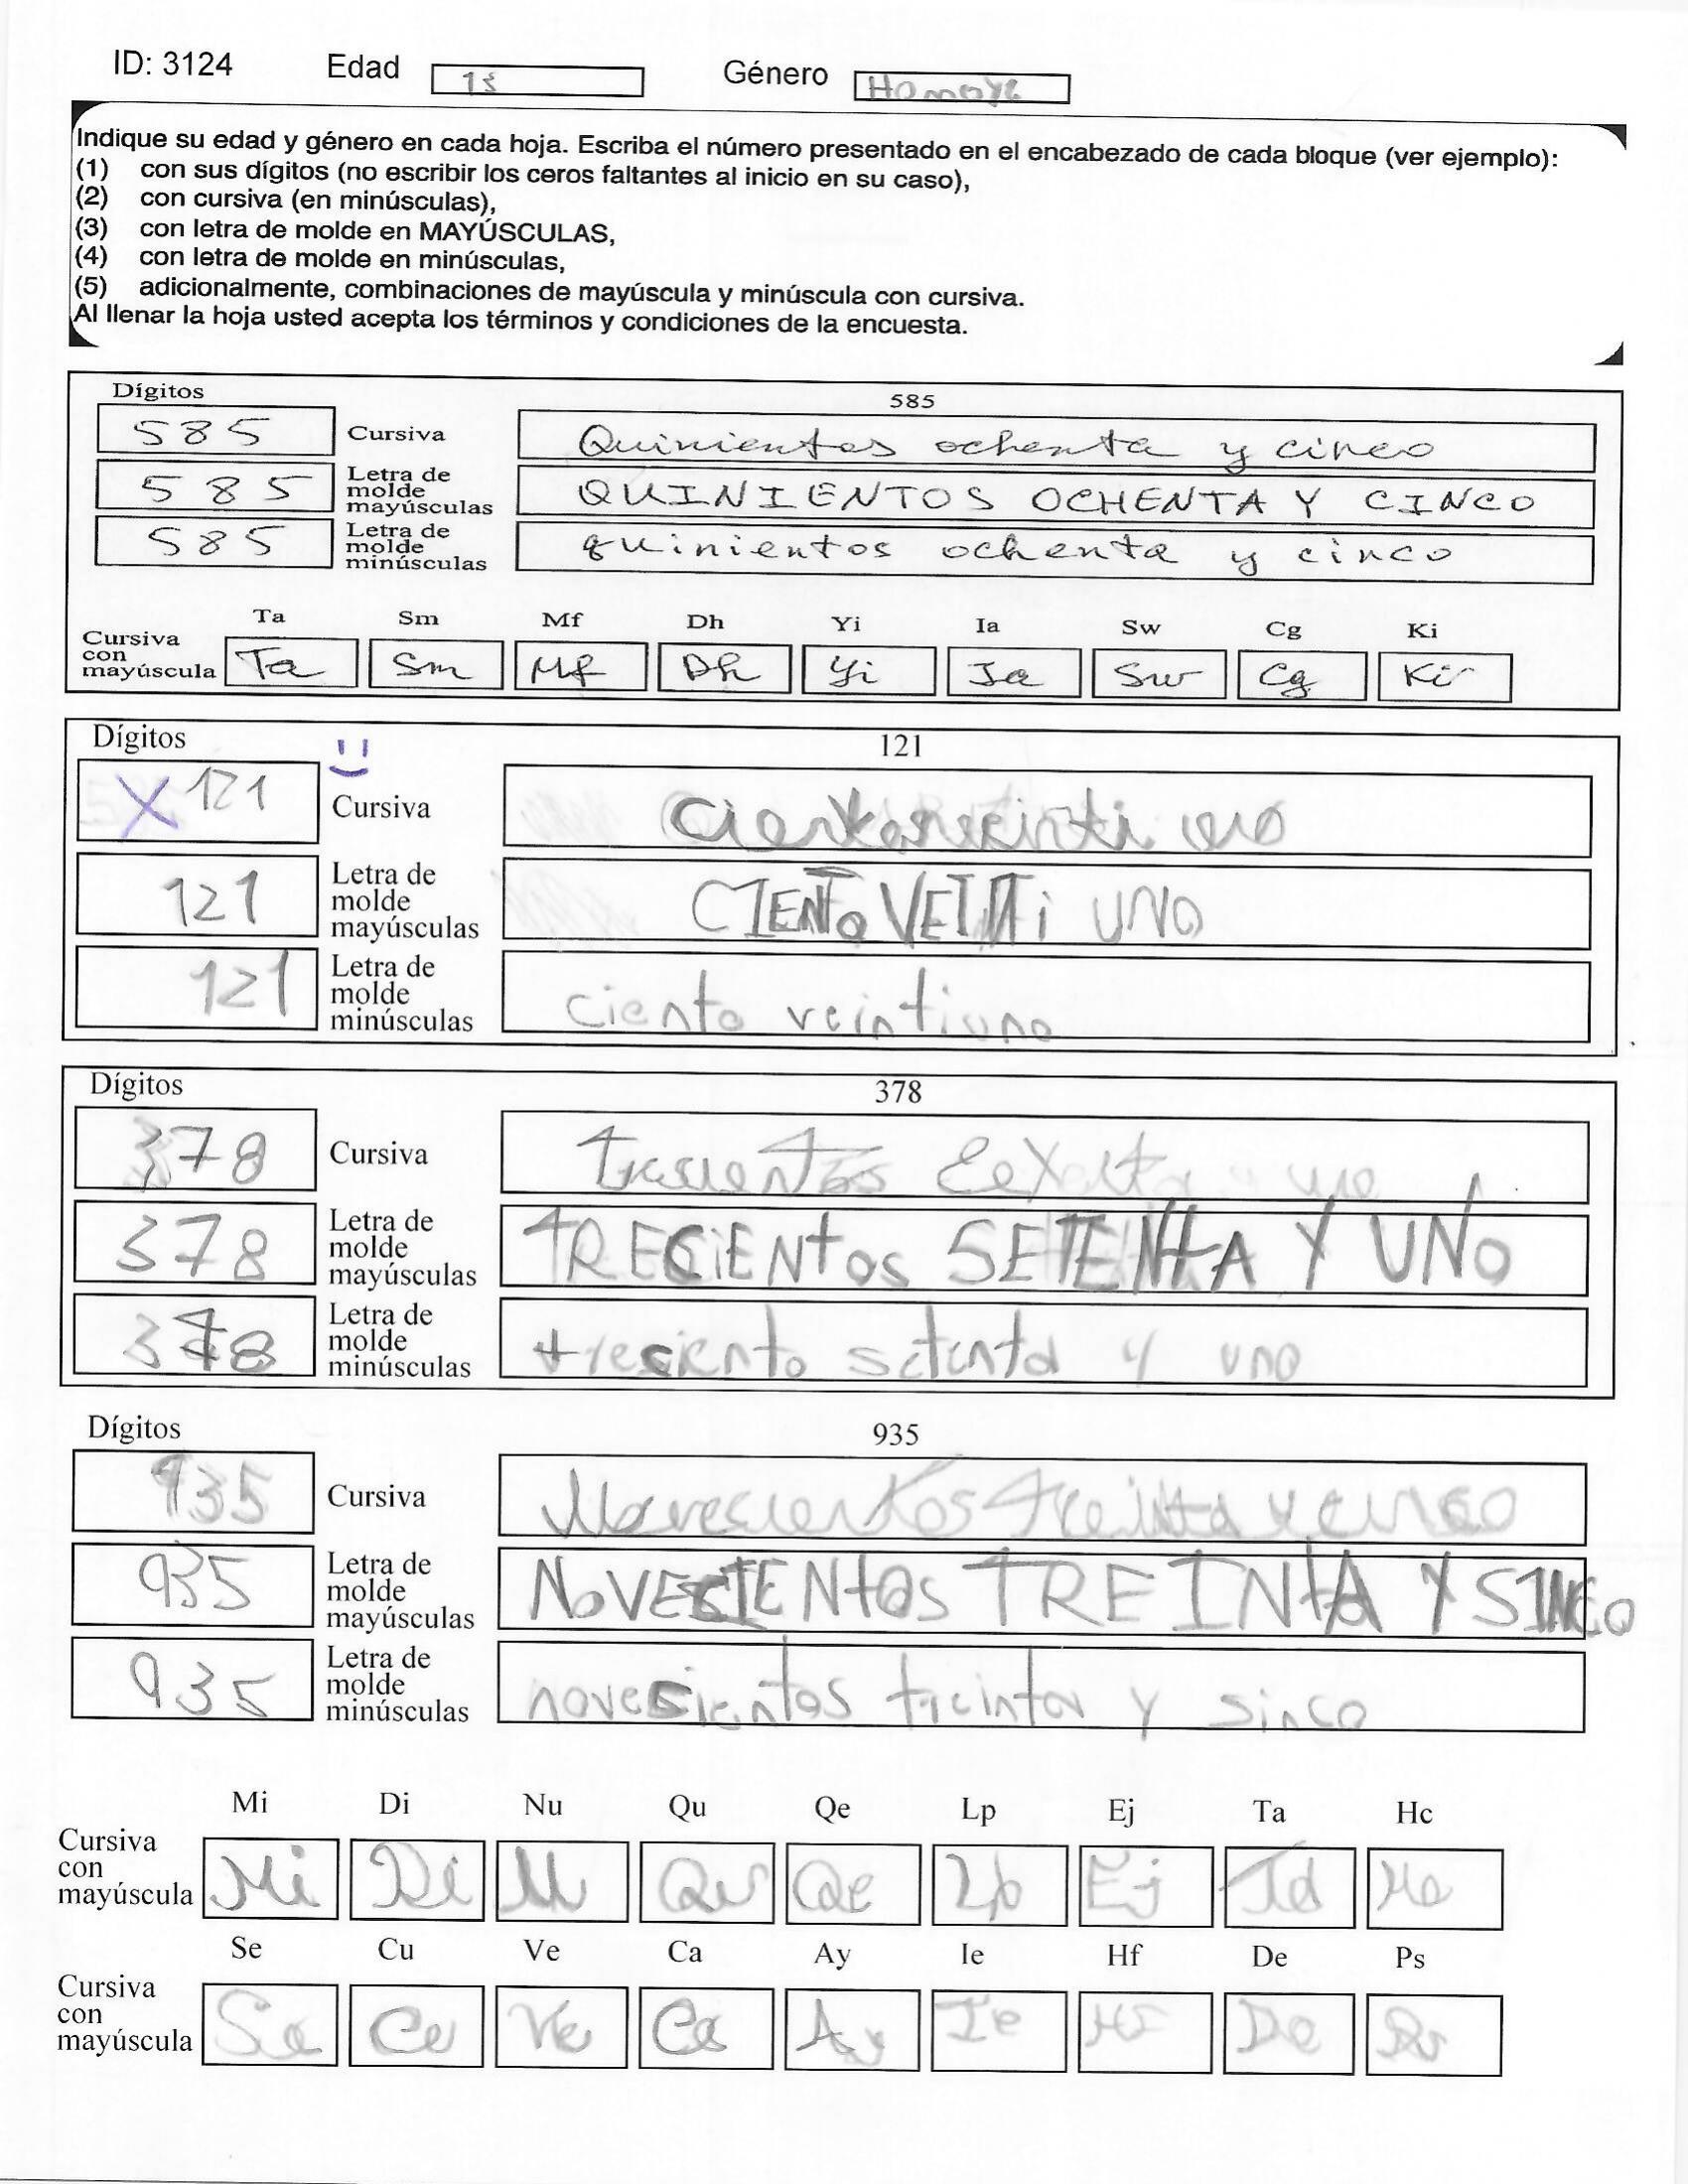 ID: 3124 Edad Género
Indique su edad y género en cada hoja. Escriba el número presentado en el encabezado de cada bloque (ver ejemplo):
(1) con sus dígitos (no escribir los ceros faltantes al inicio en su caso),
(2) con cursiva (en minúsculas),
(3) con letra de molde en MAYÚSCULAS,
(4) con letra de molde en minúsculas,
(5) adicionalmente, combinaciones de mayúscula y minúscula con cursiva.
Al llenar la hoja usted acepta los términos y condiciones de la encuesta.
Dígitos 585
585 Cursiva Quinientos ochenta y cinco
585 Letra de molde mayúsculas QUINIENTOS OCHENTA Y CINCO
585 Letra de molde minúsculas quinientos ochenta y cinco
Ta Sm Mf Dh Yi Ia Sw Cg Ki
Cursiva con mayúscula Ta Sm Mf Dh Yi Ia Sw Cg Ki
Dígitos 121
X 121 Cursiva
121 Letra de molde mayúsculas CIENTo VEINTi UNO
121 Letra de molde minúsculas ciento veintiuno
Dígitos 378
378 Cursiva
378 Letra de molde mayúsculas tRECiENtos SETENtA Y UNO
378 Letra de molde minúsculas tresciento setenta y uno
Dígitos 935
935 Cursiva Novescientos treinta y cinco
935 Letra de molde mayúsculas NoVECIENtOS TREINtA Y SINCO
935 Letra de molde minúsculas novecientos treinta y sinco
Mi Di Nu Qu Qe Lp Ej Ta Hc
Cursiva con mayúscula Mi Di Qu Qe Lp Ej Ta
Se Cu Ve Ca Ay Ie Hf De Ps
Cursiva con mayúscula Se Cu Ve Ca Ay Ie Hf De